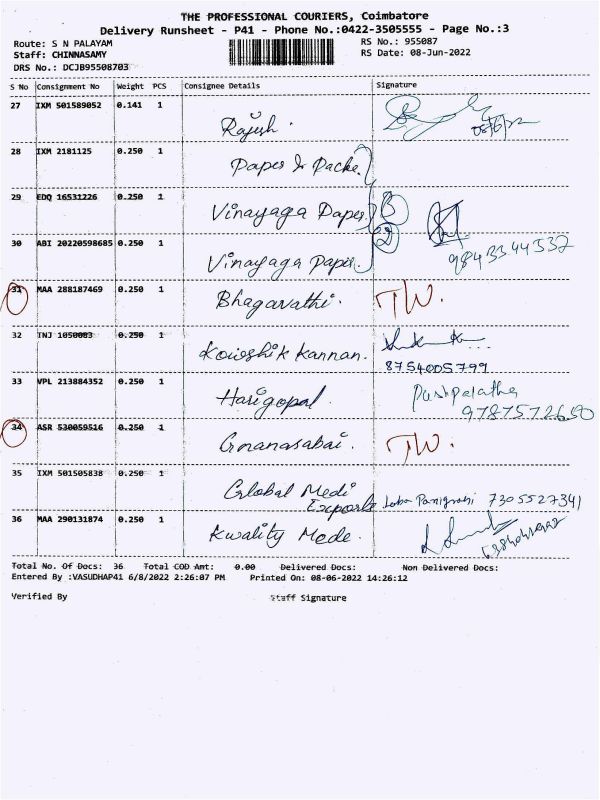 THE PROFESSIONAL COURIERS, Coimbatore
Delivery Runsheet - P41 - Phone No.:0422-3505555 - Page No.:3
Route: S N PALAYAM
RS No.: 955087
Staff: CHINNASAMY
RS Date: 08-Jun-2022
DRS No.: DCJB95508703
S No Consignment No Weight PCS Consignee Details Signature
27 IXM 501589052 0.141 1 Rajesh. 08/6/22
28 IXM 2181125 0.250 1 Paper & Packe.
29 EDQ 16531226 0.250 1 Vinayaga Paper. 3
30 ABI 20220598685 0.250 1 Vinayaga Paper. 2 9843344532
31 MAA 288187469 0.250 1 Bhagavathi. TW.
32 INJ 1050083 0.250 1 Kowshik Kannan. 8754005799
33 VPL 213884352 0.250 1 Harigopal. Pushpalatha
9787572650
34 ASR 530059516 0.250 1 Gnanasabai. TW.
35 IXM 501505838 0.250 1 Global Medi
Exports Panigrahi 7305527341
36 MAA 290131874 0.250 1 Kwality Mode.
Total No. Of Docs: 36 Total COD Amt: 0.00 Delivered Docs: Non Delivered Docs:
Entered By :VASUDHAP41 6/8/2022 2:26:07 PM Printed On: 08-06-2022 14:26:12
Verified By Staff Signature